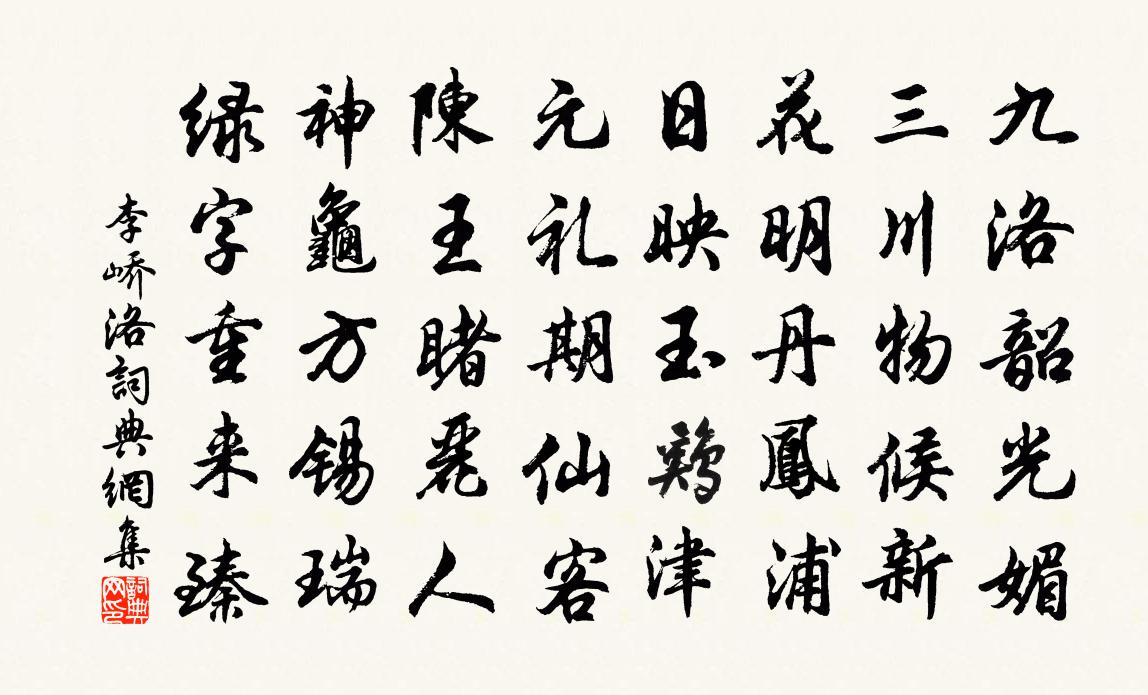 九洛韶光媚
三川物候新
花明丹鳳浦
日映玉鷄津
元礼期仙客
陳王睹麗人
神龜方錫瑞
緑字重来臻
李嶠洛詞典網集
詞典网印